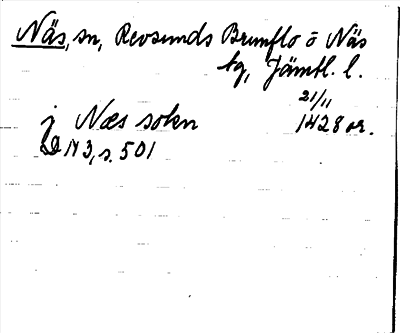 Näs, sn, Revsunds Brunflo o Näs
tg, Jämtl. l.
21/11
j Næs sokn 1428 or.
DN 3, s. 501